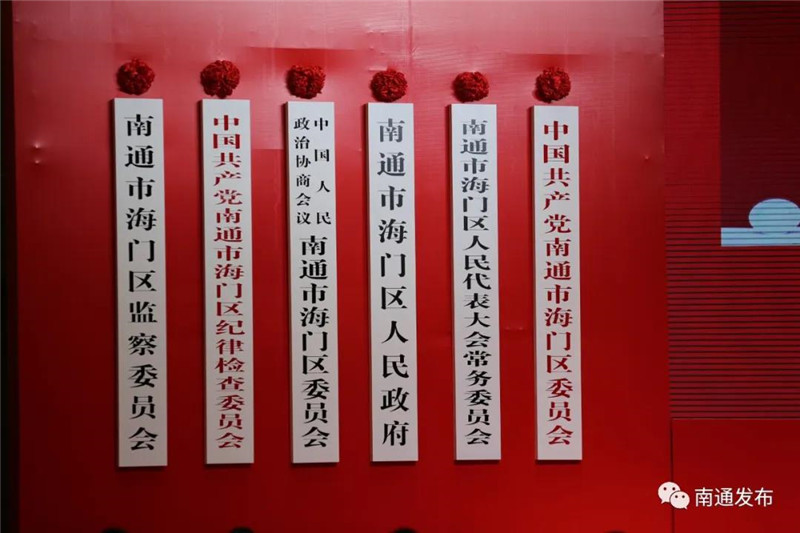 南通市海门区监察委员会
中国共产党南通市海门区纪律检查委员会
中国人民
政治协商会议
南通市海门区委员会
南通市海门区人民政府
南通市海门区人民代表大会常务委员会
中国共产党南通市海门区委员会
南通发布